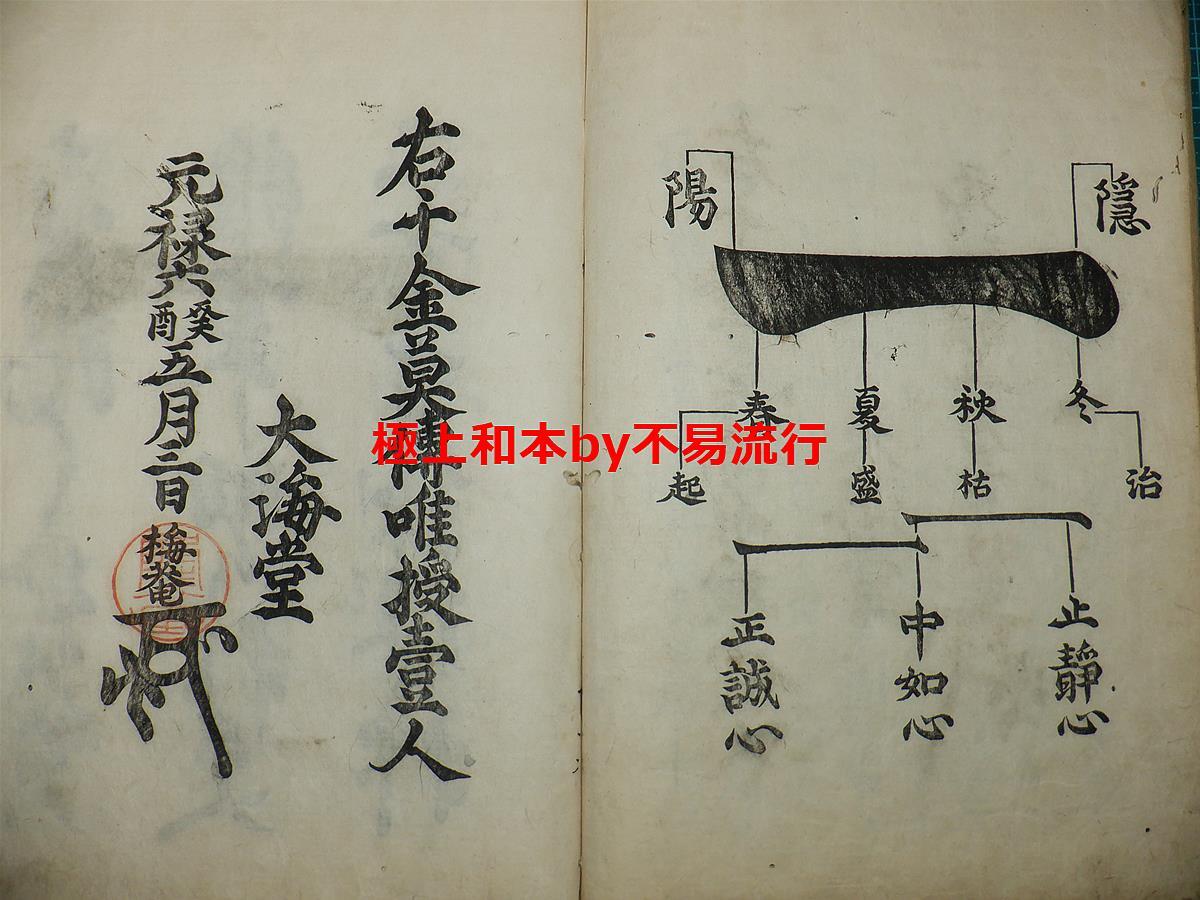 隠
陽
冬
秋
夏
春
治
枯
盛
起
止静心
中如心
正誠心
右千金莫傳唯授壹人
大海堂
元禄六癸酉五月三日
梅菴
極上和本by不易流行